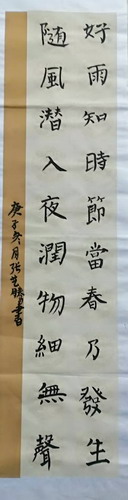 好雨知時節當春乃發生
隨風潛入夜潤物細無聲
庚子冬月張書